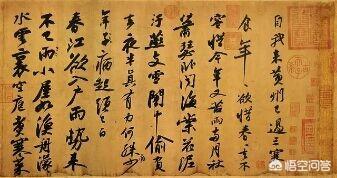 自我來黃州已過三寒
食年〻欲惜春〻去不
容惜今年又苦雨兩月秋
蕭瑟卧聞海棠花泥
汙燕支雪闇中偷負
去夜半真有力何殊病少
年子病起頭已白
春江欲入戶雨勢來
不已小屋如漁舟濛〻
水雲裏空庖煮寒菜
悟空问答